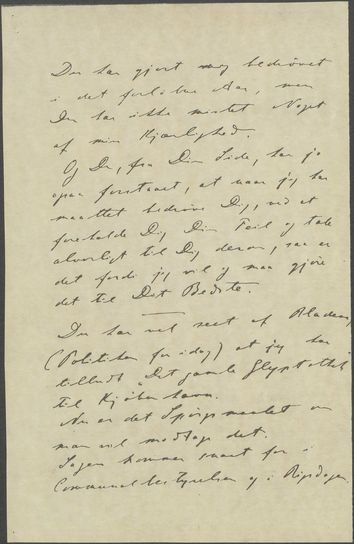 Du har gjort mig bedrøvet
i det forløbne Aar, men
Du har ikke mistet Noget
af min Kjærlighed.
Og Du, fra Din Side, har jo
ogsaa forstaaet, at naar jeg har
maattet bedrøve Dig, ved at
foreholde Dig Din Feil og tale
alvorligt til Dig derom, saa er
det fordi jeg vil og maa gjøre
det til Dit Bedste.
Du har vel seet af Bladene,
(Politiken for idag) at jeg har
tilbudt "Det gamle Glyptothek"
til Kjøbenhavn.
Nu er det Spørgsmaalet om
man vil modtage det.
Sagen kommer snart for i
Communalbestyrelsen og i Rigsdagen.